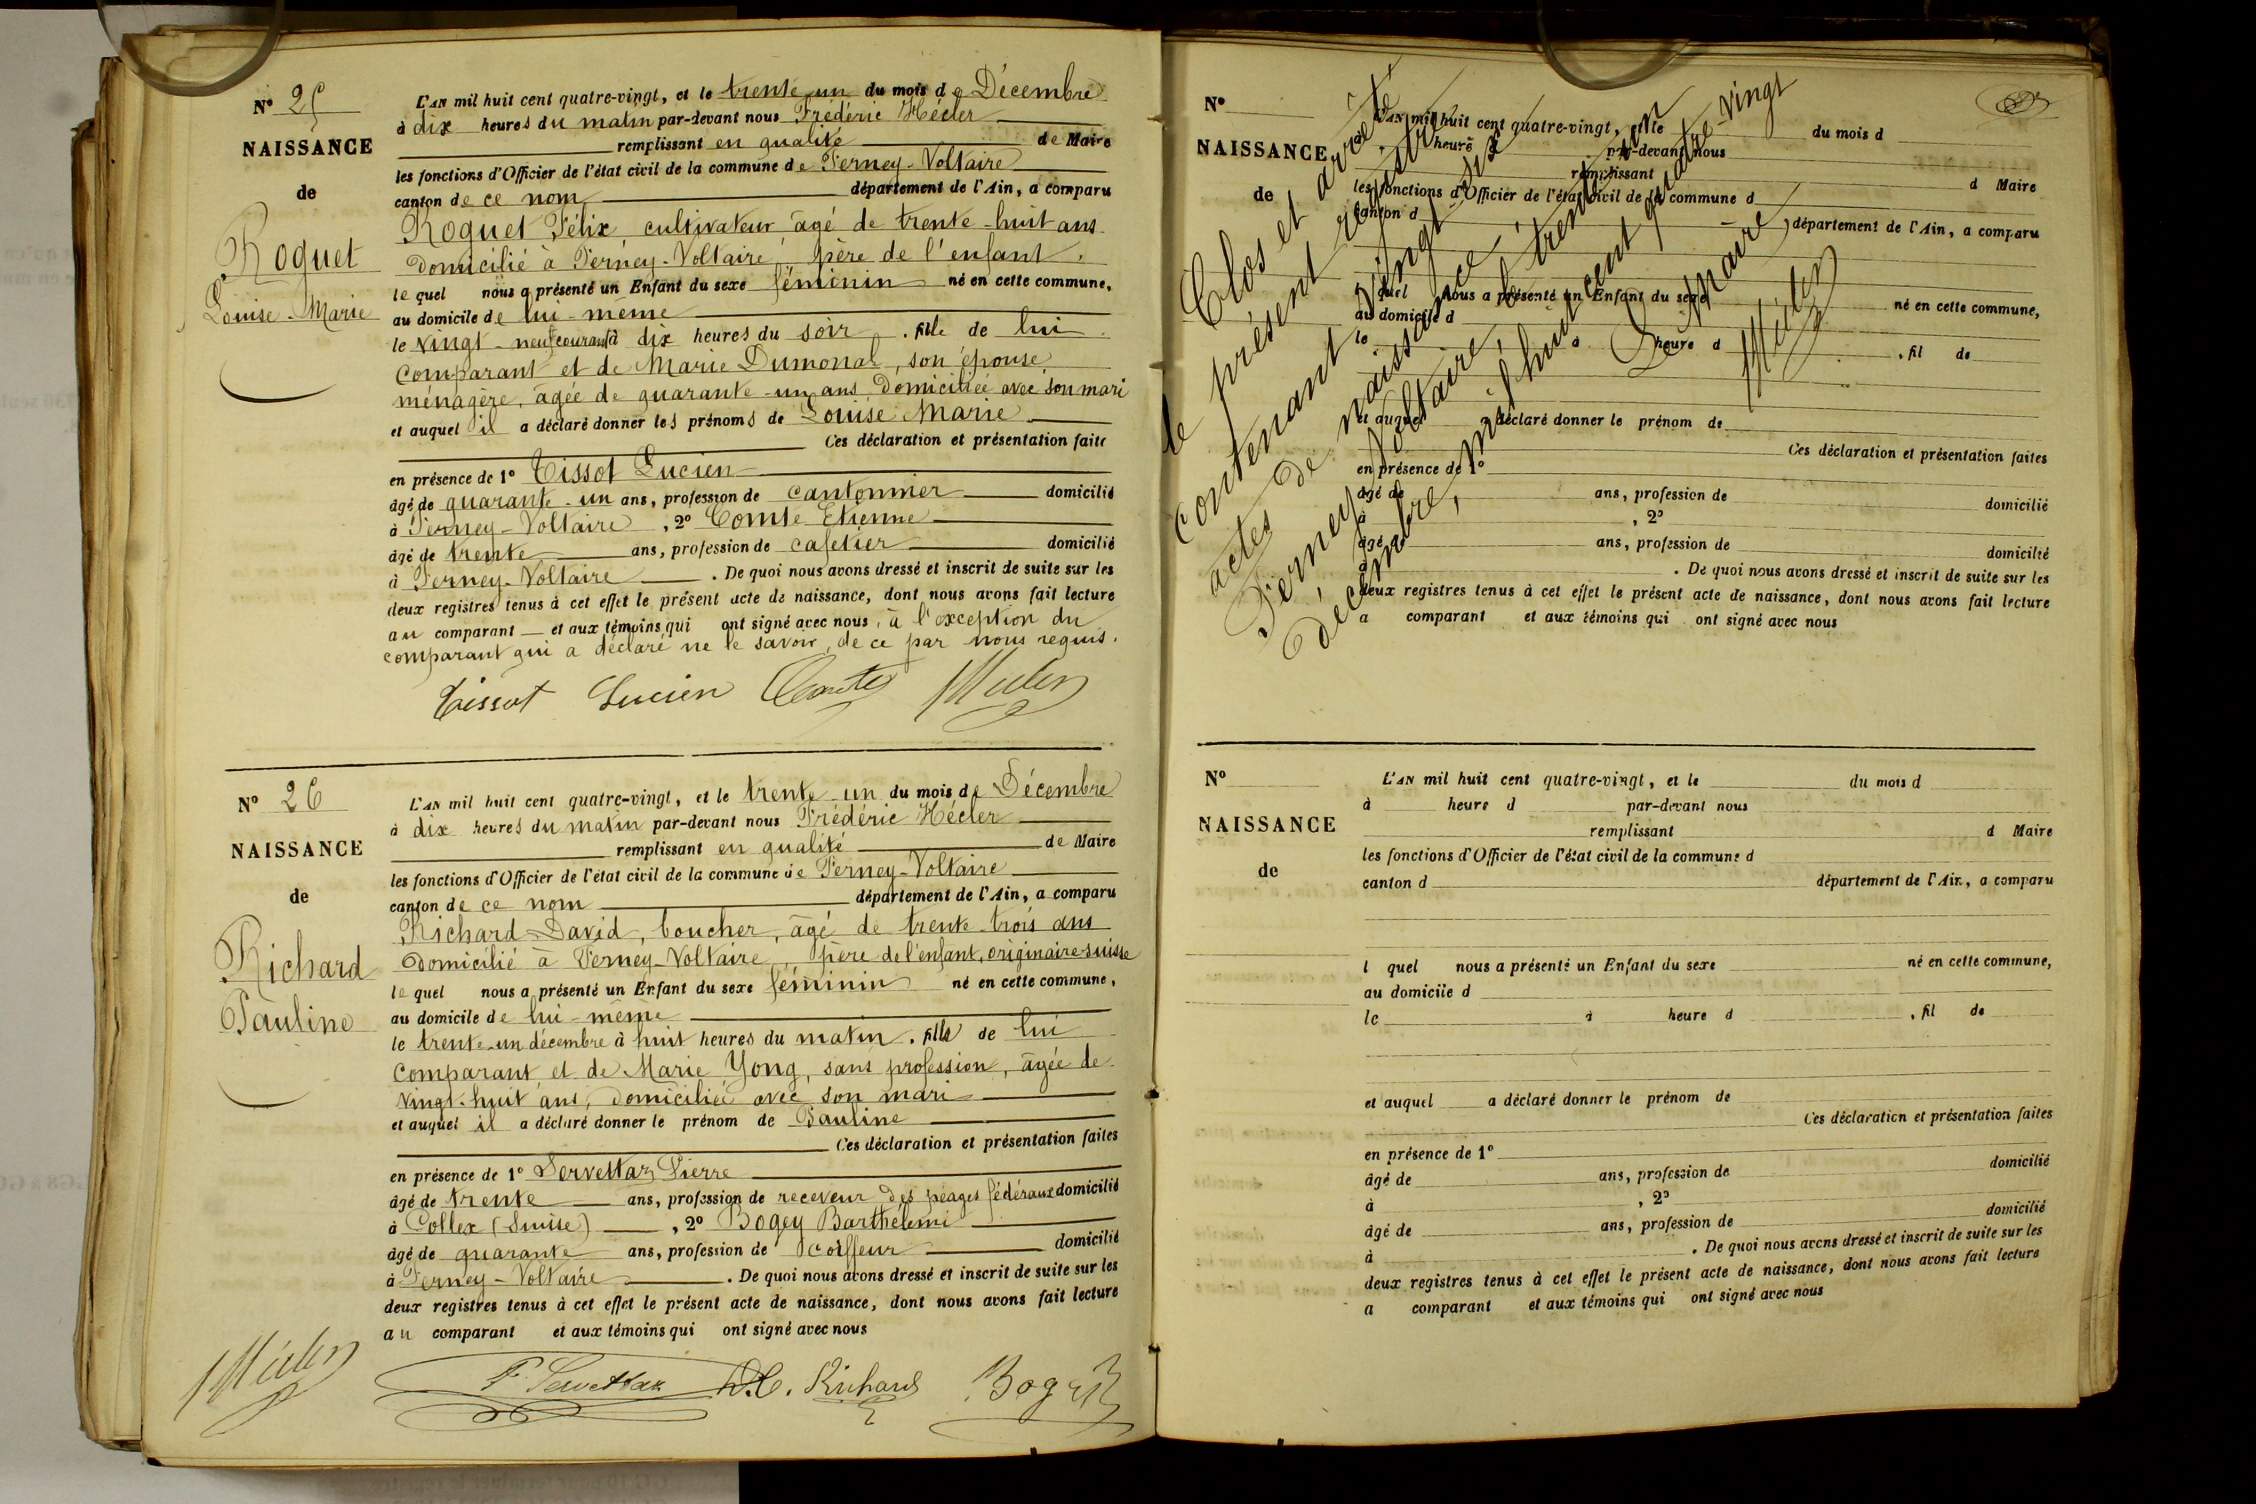 N° 25
NAISSANCE
de
Roquet
Louise-Marie
L'AN mil huit cent quatre-vingt, et le trente un du mois de Décembre
à dix heures du matin par-devant nous Frédéric Hécler
remplissant en qualité de Maire
les fonctions d'Officier de l'état civil de la commune de Ferney-Voltaire
canton de ce nom département de l'Ain, a comparu
Roquet Félix, cultivateur, âgé de trente-huit ans
domicilié à Ferney-Voltaire, père de l'enfant,
lequel nous a présenté un Enfant du sexe féminin né en cette commune,
au domicile de lui-même
le vingt-neuf courant à dix heures du soir, fille de lui
comparant et de Marie Dumonal, son épouse
ménagère, âgée de quarante-un ans domiciliée avec son mari
et auquel il a déclaré donner les prénoms de Louise Marie
Ces déclaration et présentation faites
en présence de 1° Tissot Lucien
âgé de quarante-un ans, profession de cantonnier domicilié
à Ferney-Voltaire, 2° Comte Etienne
âgé de trente ans, profession de cafetier domicilié
à Ferney-Voltaire. De quoi nous avons dressé et inscrit de suite sur les
deux registres tenus à cet effet le présent acte de naissance, dont nous avons fait lecture
au comparant et aux témoins qui ont signé avec nous, à l'exception du
comparant qui a déclaré ne le savoir, de ce par nous requis.
Tissot Lucien Comte
N° 26
NAISSANCE
de
Richard
Pauline
L'AN mil huit cent quatre-vingt, et le trente-un du mois de Décembre
à dix heures du matin par-devant nous Frédéric Hécler
remplissant en qualité de Maire
les fonctions d'Officier de l'état civil de la commune de Ferney-Voltaire
canton de ce nom département de l'Ain, a comparu
Richard David, boucher, âgé de trente trois ans
domicilié à Ferney-Voltaire, père de l'enfant, originaire suisse
lequel nous a présenté un Enfant du sexe féminin né en cette commune,
au domicile de lui-même
le trente-un décembre à huit heures du matin, fille de lui
comparant et de Marie Yong, sans profession, âgée de
vingt-huit ans, domiciliée avec son mari
et auquel il a déclaré donner le prénom de Pauline
Ces déclaration et présentation faites
en présence de 1° Servettaz Pierre
âgé de trente ans, profession de receveur des péages fédéraux domicilié
à Collex (Suisse), 2° Bogey Barthelemi
âgé de quarante ans, profession de coiffeur domicilié
à Ferney-Voltaire. De quoi nous avons dressé et inscrit de suite sur les
deux registres tenus à cet effet le présent acte de naissance, dont nous avons fait lecture
au comparant et aux témoins qui ont signé avec nous
P. Servettaz D.C. Richard Bogey
N°
NAISSANCE
de
L'AN mil huit cent quatre-vingt, et le du mois d
heure par-devant nous
remplissant d Maire
les fonctions d'Officier de l'état civil de la commune d
canton d département de l'Ain, a comparu
quel nous a présenté un Enfant du sexe né en cette commune,
au domicile d
le à heure d , fil de
et auquel a déclaré donner le prénom de
Ces déclaration et présentation faites
en présence de 1°
âgé de ans, profession de domicilié
à , 2°
âgé ans, profession de domicilié
. De quoi nous avons dressé et inscrit de suite sur les
deux registres tenus à cet effet le présent acte de naissance, dont nous avons fait lecture
a comparant et aux témoins qui ont signé avec nous
Clos et arrêté
le présent registre
contenant vingt six
actes de naissance
Ferney Voltaire, le trente un
décembre, mil huit cent quatre-vingt
Le Maire,
N°
NAISSANCE
de
L'AN mil huit cent quatre-vingt, et le du mois d
à heure d par-devant nous
remplissant d Maire
les fonctions d'Officier de l'état civil de la commune d
canton d département de l'Ain, a comparu
l quel nous a présenté un Enfant du sexe né en cette commune,
au domicile d
le à heure d , fil de
et auquel a déclaré donner le prénom de
Ces déclaration et présentation faites
en présence de 1°
âgé de ans, profession de domicilié
à , 2°
âgé de ans, profession de domicilié
à . De quoi nous avons dressé et inscrit de suite sur les
deux registres tenus à cet effet le présent acte de naissance, dont nous avons fait lecture
a comparant et aux témoins qui ont signé avec nous